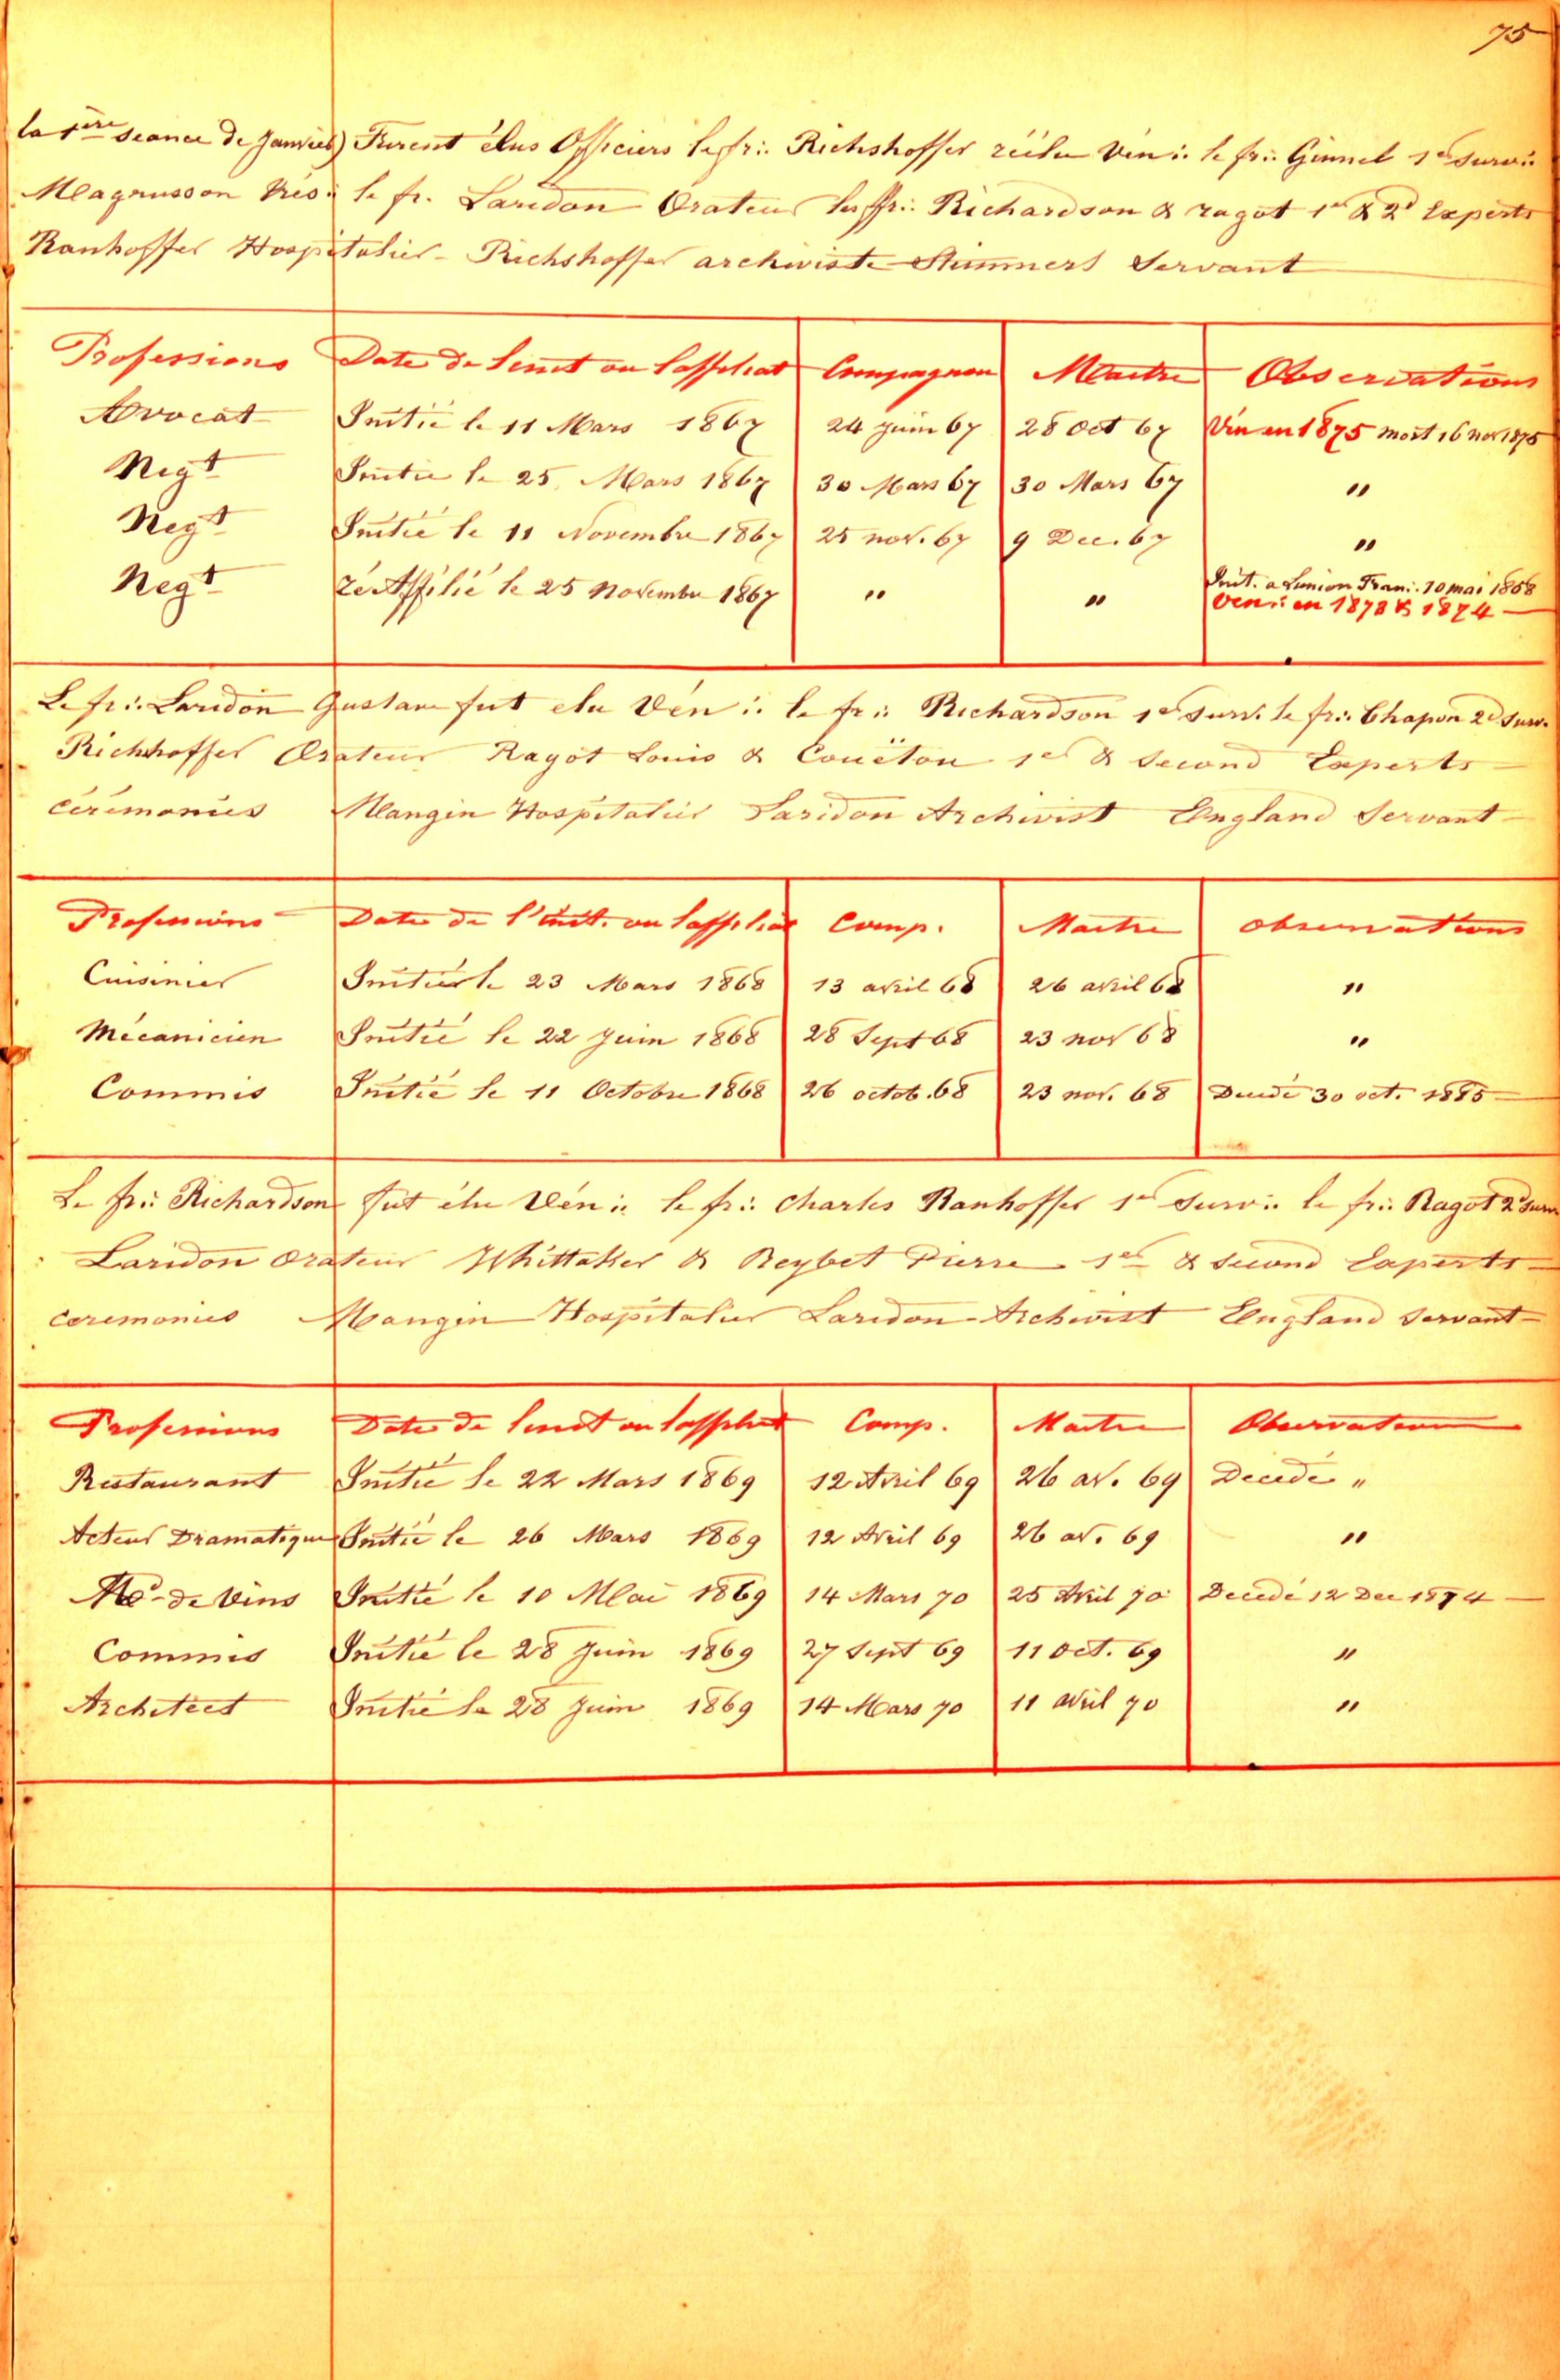 75
la 1ère Seance de Janvier) Furent élus Officiers les fr∴ Richshoffer réélu Ven∴ le fr∴ Gimmel 1er Surv∴
Magnusson Trés∴ le fr. Laridon Orateur les ffr∴ Richardson & ragot 1er & 2d Experts
Ranhoffer Hospitalier - Richshoffer archiviste Servant
Professions Date de l'init ou l'affiliat Compagnon Maitre Observations
Avocat Initié le 11 Mars 1867 24 juin 67 28 Oct 67 Ven en 1875 mort 16 nov 1875
Negt Initié le 25 Mars 1867 30 Mars 67 30 Mars 67 "
Negt Initié le 11 Novembre 1867 25 nov. 67 9 Dec. 67 "
Negt réAffilié le 25 Novembre 1867 " " Init. a Lunion Fran∴ 10 mai 1858
Ven∴ en 1873 & 1874
Le fr∴ Laridon Gustave fut elu Ven∴ le fr∴ Richardson 1er Surv. le fr∴ Chapon 2d Surv.
Richhoffer Orateur Ragot Louis & Couëtou 1er & Second Experts
cérémonies Mangin Hospitalier Laridon Archivist England Servant
Professions Date de l'init. ou l'affiliat Comp. Maitre observations
Cuisinier Initié le 23 Mars 1868 13 avril 68 26 avril 68 "
Mécanicien Initié le 22 Juin 1868 28 Sept 68 23 nov 68 "
Commis Initié le 11 Octobre 1868 26 octob. 68 23 nov. 68 Decedé 30 oct. 1885
Le fr∴ Richardson fut élu Vén∴ le fr∴ Charles Ranhoffer 1er Surv∴ le fr∴ Ragot 2d Surv
Laridon Orateur Whittaker & Reybet Pierre 1er & second Experts
ceremonies Mangin Hospitalier Laridon Archivist England Servant
Professions Date de l'init ou l'affiliat Comp. Maitre Observation
Restaurant Initié le 22 Mars 1869 12 Avril 69 26 av. 69 Decedé "
Acteur Dramatique Initié le 26 Mars 1869 12 Avril 69 26 av. 69 "
Md de Vins Initié le 10 Mai 1869 14 Mars 70 25 Avril 70 Decedé 12 Dec 1874
Commis Initié le 28 Juin 1869 27 Sept 69 11 Oct. 69 "
Architect Initié le 28 Juin 1869 14 Mars 70 11 avril 70 "